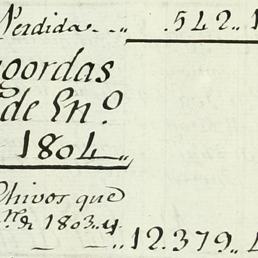 Perdida... 542..1
gordas
de En.º
1804..
Chivos que
de 1803.y
12.379..